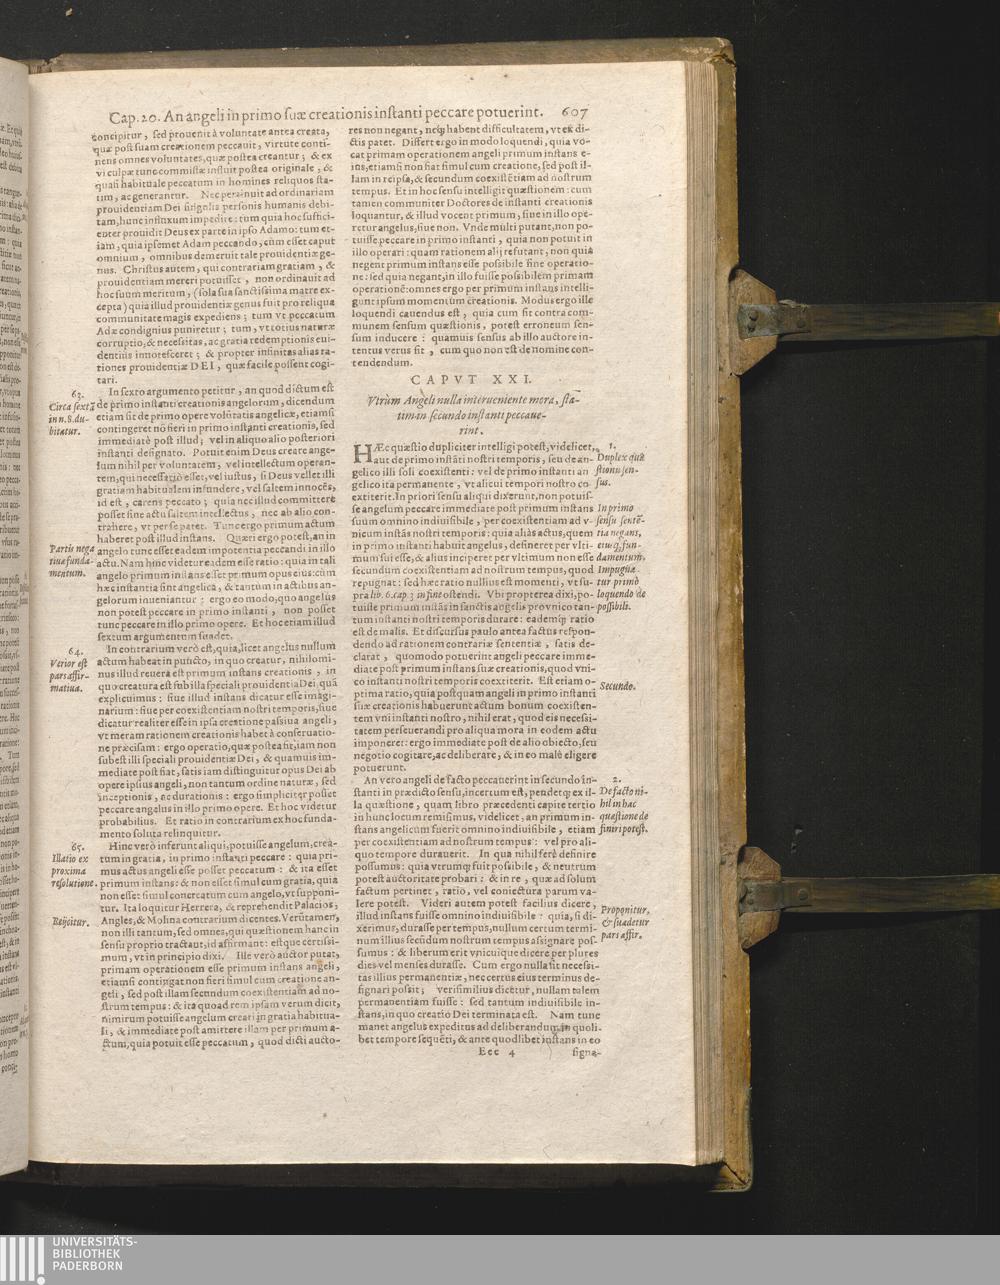 Cap. 20. An angeli in primo suæ creationis instanti peccare potuerint. 607
concipitur, sed prouenit à voluntate antea creata,
quæ post suam creationem peccauit, virtute conti-
nens omnes voluntates, quæ postea creantur; & ex
vi culpæ tunc commissæ instuit postea originale, &
quasi habituale peccatum in homines reliquos sta-
tim, ac generantur. Nec pertinuit ad ordinariam
prouidentiam Dei singulis personis humanis debi-
tam, hunc influxum impedire: tum quia hoc suffici-
enter prouidit Deus ex parte in ipso Adamo: tum et-
iam, quia ipsemet Adam peccando, cùm esset caput
omnium, omnibus demeruit tale prouidentiæ ge-
nus. Christus autem, qui contrariam gratiam, &
prouidentiam mereri potuisset, non ordinauit ad
hoc suum meritum, (sola sua sanctissima matre ex-
cepta) quia illud prouidentiæ genus fuit pro reliqua
communitate magis expediens; tum vt peccatum
Adæ condignius puniretur; tum, vt totius naturæ
corruptio, & necessitas, ac gratia redemptionis eui-
dentiùs innotesceret; & propter infinitas alias ra-
tiones prouidentiæ DEI, quæ facile possent cogi-
tari.
63.
Circa sextū
in n. 8. du-
bitatur.
In sexto argumento petitur, an quod dictum est
de primo instanti creationis angelorum, dicendum
etiam sit de primo opere volūtatis angelicæ, etiamsi
contingeret nō fieri in primo instanti creationis, sed
immediatè post illud; vel in aliquo alio posteriori
instanti designato. Potuit enim Deus creare ange-
lum nihil per voluntatem, vel intellectum operan-
tem, qui necessariò esset, vel iustus, si Deus vellet illi
gratiam habitualem infundere, vel saltem innocēs,
id est, carens peccato; quia nec illud committere
posset sine actu saltem intellectus, nec ab alio con-
trahere, vt per se patet. Tunc ergo primum actum
haberet post illud instans. Quæri ergo potest, an in
angelo tunc esset eadem impotentia peccandi in illo
actu. Nam hinc videtur eadem esse ratio: quia in tali
angelo primum instans esset primum opus eius: cùm
hæc instantia sint angelica, & tantum in actibus an-
gelorum inueniantur: ergo eo modo, quo angelus
non potest peccare in primo instanti, non posset
tunc peccare in illo primo opere. Et hoc etiam illud
sextum argumentum suadet.
Partis nega
tiuæ funda-
mentum.
64.
Verior est
pars affir-
matiua.
In contrarium verò est, quia, licet angelus nullum
actum habeat in puncto, in quo creatur, nihilomi-
nus illud reuera est primum instans creationis, in
quo creatura est sub illa speciali prouidentia Dei, quā
explicuimus: siue illud instans dicatur esse imagi-
narium: siue per coexistentiam nostri temporis, siue
dicatur realiter esse in ipsa creatione passiua angeli,
vt meram rationem creationis habet à conseruatio-
ne præcisam: ergo operatio, quæ postea fit, iam non
subest illi speciali prouidentiæ Dei, & quamuis im-
mediate post fiat, satis iam distinguitur opus Dei ab
opere ipsius angeli, non tantum ordine naturæ, sed
inceptionis, ac durationis: ergo simpliciter posset
peccare angelus in illo primo opere. Et hoc videtur
probabilius. Et ratio in contrarium ex hoc funda-
mento soluta relinquitur.
65.
Illatio ex
proxima
resolutione.
Reijcitur.
Hinc verò inferunt aliqui, potuisse angelum, crea-
tum in gratia, in primo instanti peccare: quia pri-
mus actus angeli esse posset peccatum: & ita esset
primum instans: & non esset simul cum gratia, quia
non esset simul concreatum cum angelo, vt supponi-
tur. Ita loquitur Herrera, & reprehendit Palacios,
Angles, & Molina contrarium dicentes. Verūtamen,
non illi tantum, sed omnes, qui quæstionem hanc in
sensu proprio tractant, id affirmant: estque certissi-
mum, vt in principio dixi. Ille verò auctor putat,
primam operationem esse primum instans angeli,
etiamsi contingat non fieri simul cum creatione an-
geli, sed post illam secundum coexistentiam ad no-
strum tempus: & ita quoad rem ipsam verum dicit,
nimirum potuisse angelum creari in gratia habitua-
li, & immediate post amittere illam per primum a-
ctum, quia potuit esse peccatum, quod dicti aucto-
res non negant, neq; habent difficultatem, vt ex di-
ctis patet. Differt ergo in modo loquendi, quia vo-
cat primam operationem angeli primum instans e-
ius, etiamsi non fiat simul cum creatione, sed post il-
lam in reipsa, & secundum coexistētiam ad nostrum
tempus. Et in hoc sensu intelligit quæstionem: cum
tamen communiter Doctores de instanti creationis
loquantur, & illud vocent primum, siue in illo ope-
retur angelus, siue non. Vnde multi putant, non po-
tuisse peccare in primo instanti, quia non potuit in
illo operari: quam rationem alij refutant, non quia
negent primum instans esse possibile sine operatio-
ne: sed quia negant, in illo fuisse possibilem primam
operationē: omnes ergo per primum instans intelli-
gunt ipsum momentum creationis. Modus ergo ille
loquendi cauendus est, quia cum sit contra com-
munem sensum quæstionis, potest erroneum sen-
sum inducere: quamuis sensus ab illo auctore in-
tentus verus sit, cum quo non est de nomine con-
tendendum.
CAPVT XXI.
Vtrùm Angeli nulla interueniente mora, sta-
tim in secundo instanti peccaue-
rint.
1.
Duplex quæ
stionis sen-
sus.
In primo
sensu sentē-
tia negans,
eiusq; fun-
damentum.
Impugnæ-
tur primò
loquendo de
possibili.
Secundo.
HÆc quæstio dupliciter intelligi potest, videlicet,
aut de primo instāti nostri temporis, seu de an-
gelico illi soli coexistenti: vel de primo instanti an
gelico ita permanente, vt alicui tempori nostro co
extiterit. In priori sensu aliqui dixerunt, non potuis-
se angelum peccare immediate post primum instans
suum omnino indiuisibile, per coexistentiam ad v-
nicum instās nostri temporis: quia aliàs actus, quem
in primo instanti habuit angelus, desineret per vlti-
mum sui esse, & alius inciperet per vltimum non esse
secundum coexistentiam ad nostrum tempus, quod
repugnat: sed hæc ratio nullius est momenti, vt su-
pra lib. 6. cap. 3 in fine ostendi. Vbi propterea dixi, po-
tuisse primum instās in sanctis angelis pro vnico tan-
tum instanti nostri temporis durare: eademq; ratio
est de malis. Et discursus paulo antea factus respon-
dendo ad rationem contrariæ sententiæ, satis de-
clarat, quomodo potuerint angeli peccare imme-
diate post primum instans suæ creationis, quod vni-
co instanti nostri temporis coextiterit. Est etiam o-
ptima ratio, quia postquam angeli in primo instanti
suæ creationis habuerunt actum bonum coexisten-
tem vni instanti nostro, nihil erat, quod eis necessi-
tatem perseuerandi pro aliqua mora in eodem actu
imponeret: ergo immediate post de alio obiecto, seu
negotio cogitare, ac deliberare, & in eo malè eligere
potuerunt.
2.
De facto ni-
hil in hac
quæstione de
finiri potest.
Proponitur,
& suadetur
pars affir.
An vero angeli de facto peccauerint in secundo in-
stanti in prædicto sensu, incertum est, pendetq; ex il-
la quæstione, quam libro præcedenti capite tertio
in hunc locum remisimus, videlicet, an primum in-
stans angelicum fuerit omnino indiuisibile, etiam
per coexistentiam ad nostrum tempus: vel pro ali-
quo tempore durauerit. In qua nihil ferè definire
possumus: quia vtrumq; fuit possibile, & neutrum
potest auctoritate probari: & in re, quæ ad solum
factum pertinet, ratio, vel coniectura parum va-
lere potest. Videri autem potest facilius dicere,
illud instans fuisse omnino indiuisibile: quia, si di-
xerimus, durasse per tempus, nullum certum termi-
num illius secūdum nostrum tempus assignare pos-
sumus: & liberum erit vnicuique dicere per plures
dies vel menses durasse. Cum ergo nulla sit necessi-
tas illius permanentiæ, nec certus eius terminus de-
signari possit; verisimilius dicetur, nullam talem
permanentiam fuisse: sed tantum indiuisibile in-
stans, in quo creatio Dei terminata est. Nam tunc
manet angelus expeditus ad deliberandum in quoli-
bet tempore sequēti, & ante quodlibet instans in eo
Eee 4 signa-
UNIVERSITÄTS-
BIBLIOTHEK
PADERBORN